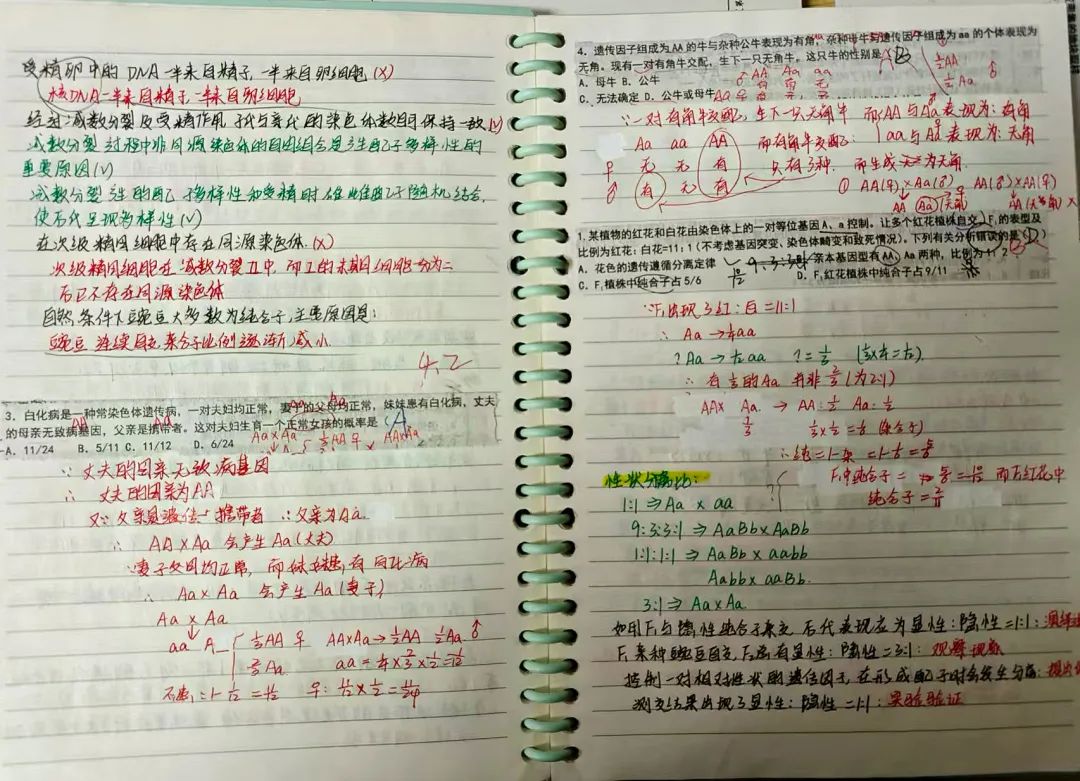 受精卵中的DNA一半来自精子,一半来自卵细胞(X)
核DNA一半来自精子,一半来自卵细胞
经过减数分裂及受精作用,子代与亲代的染色体数目保持一致(V)
减数分裂过程中非同源染色体的自由组合是产生配子多样性的
重要原因(V)
减数分裂产生的配子多样性和受精时雌雄配子随机结合,
使后代呈现多样性(V)
在次级精母细胞中存在同源染色体.(X)
次级精母细胞在减数分裂II中,而I的末期细胞一分为二
后已不存在同源染色体
自然条件下豌豆大多数为纯合子,主要原因是:
豌豆连续自交,杂合子比例逐渐减小.
4.2
3. 白化病是一种常染色体遗传病,一对夫妇均正常,妻子的父母均正常,妹妹患有白化病,丈夫
的母亲无致病基因,父亲是携带者。这对夫妇生育一个正常女孩的概率是
A. 11/24 B. 5/11 C. 11/12 D. 6/24
∵丈夫的母亲无致病基因
∴丈夫的母亲为AA
又∵父亲是携带者 ∴父亲为Aa
∴AA×Aa 会产生Aa(丈夫)
∵妻子父母均正常,而妹妹患有白化病
∴Aa×Aa 会产生Aa(妻子)
Aa × Aa
aa A_ 1/3AA ♀ AA×Aa→1/2AA 1/2Aa ♂
2/3Aa aa=1/4×2/3×1/2=1/12
=1-1/12=11/12 ♀: 11/12×1/2=11/24
4. 遗传因子组成为AA的牛与杂种公牛表现为有角,杂种母牛与遗传因子组成为aa的个体表现为
无角。现有一对有角牛交配,生下一只无角牛。这只牛的性别是
A. 母牛 B. 公牛
C. 无法确定 D. 公牛或母牛
∵一对有角牛交配,生下一只无角牛 而AA与Aa♂表现为:有角
Aa aa AA 而有角牛交配: aa与Aa♀表现为:无角
♀ 无 无 有 只有3种. 而生成为无角.
♂ 有 无 有 ① AA(♀)×Aa(♂) AA(♂)×AA(♀)
AA Aa
1. 某植物的红花和白花由染色体上的一对等位基因A、a控制。让多个红花植株自交,F₁的表型及
比例为红花:白花=11:1(不考虑基因突变、染色体畸变和致死情况)。下列有关分析错误的是(D)
A. 花色的遗传遵循分离定律 亲本基因型有AA、Aa两种,比例为1:2
C. F₁植株中纯合子占5/6 D. F₁红花植株中纯合子占9/11
∵F₁出现了红:白=11:1
∴Aa→1/4aa
?Aa→1/12aa ?=1/3 (1/3×1/4=1/12).
∴有1/3的Aa 并非2/3(为2:1)
AA×Aa → AA:1/2 Aa:1/2
1/3 1/3×1/2=1/6 (杂合子)
∴纯=1-杂=1-1/6=5/6
F₁中纯合子= 5/6=10/12 而F₁红花中
纯合子=9/11
性状分离比:
1:1⇒Aa × aa
9:3:3:1⇒AaBb×AaBb
1:1:1:1⇒AaBb × aabb
Aabb× aaBb.
3:1⇒Aa×Aa.
如用F₁与隐性纯合子杂交,后代表现应为显性:隐性=1:1:
F₁杂种豌豆自交,F₂会有显性:隐性=3:1:观察现象
控制一对相对性状的遗传因子,在形成配子时会发生分离:
测交结果出现了显性:隐性=1:1:实验验证